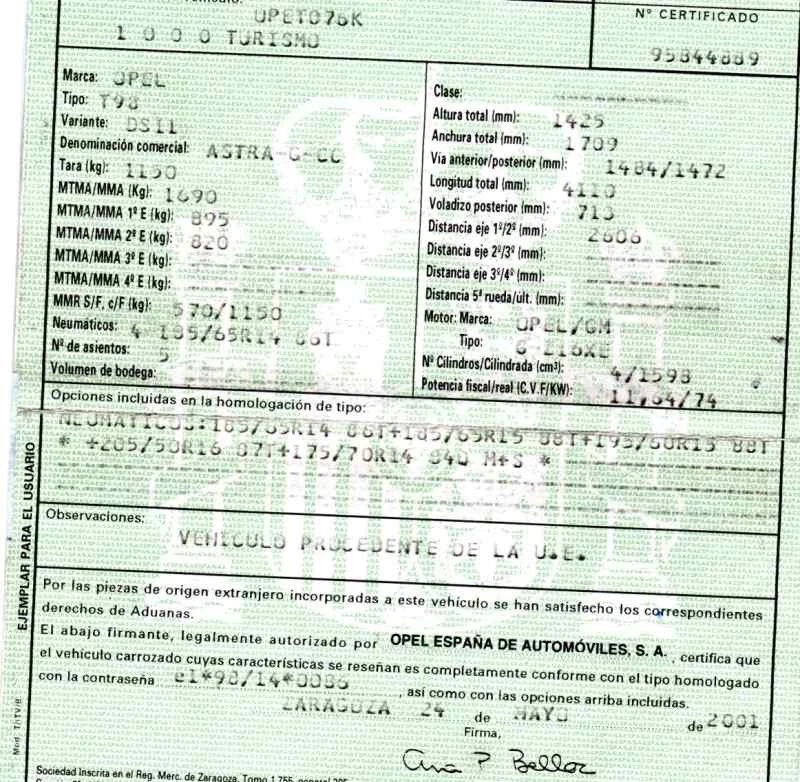 OPET078K
1 0 0 0 TURISMO
Nº CERTIFICADO
95844889
Marca: OPEL
Tipo: T98
Variante: DS11
Denominación comercial: ASTRA-G-CC
Tara (kg): 1150
MTMA/MMA (Kg): 1690
MTMA/MMA 1º E (kg): 895
MTMA/MMA 2º E (kg): 820
MTMA/MMA 3º E (kg):
MTMA/MMA 4º E (kg):
MMR S/F, c/F (kg): 570/1150
Neumáticos: 4 185/65R14 86T
Nº de asientos: 5
Volumen de bodega:
Clase:
Altura total (mm): 1425
Anchura total (mm): 1709
Vía anterior/posterior (mm): 1484/1472
Longitud total (mm): 4110
Voladizo posterior (mm): 713
Distancia eje 1º/2º (mm): 2606
Distancia eje 2º/3º (mm):
Distancia eje 3º/4º (mm):
Distancia 5ª rueda/últ. (mm):
Motor: Marca: OPEL/GM
Tipo: G-Z16XE
Nº Cilindros/Cilindrada (cm³): 4/1598
Potencia fiscal/real (C.V.F/KW): 11,64/74
Opciones incluidas en la homologación de tipo:
NEUMATICOS:185/65R14 86T+185/65R15 88T+195/60R15 88T
* +205/50R16 87T+175/70R14 84Q M+S *
Observaciones:
VEHICULO PROCEDENTE DE LA U.E.
Por las piezas de origen extranjero incorporadas a este vehículo se han satisfecho los correspondientes
derechos de Aduanas.
El abajo firmante, legalmente autorizado por OPEL ESPAÑA DE AUTOMÓVILES, S. A., certifica que
el vehículo carrozado cuyas características se reseñan es completamente conforme con el tipo homologado
con la contraseña e1*98/14*0086, así como con las opciones arriba incluidas.
ZARAGOZA 24 de MAYO de 2001
Firma,
Ana P Belloc
Sociedad Inscrita en el Reg. Merc. de Zaragoza, Tomo 1.755, general
EJEMPLAR PARA EL USUARIO
Mod. T/ITV/B